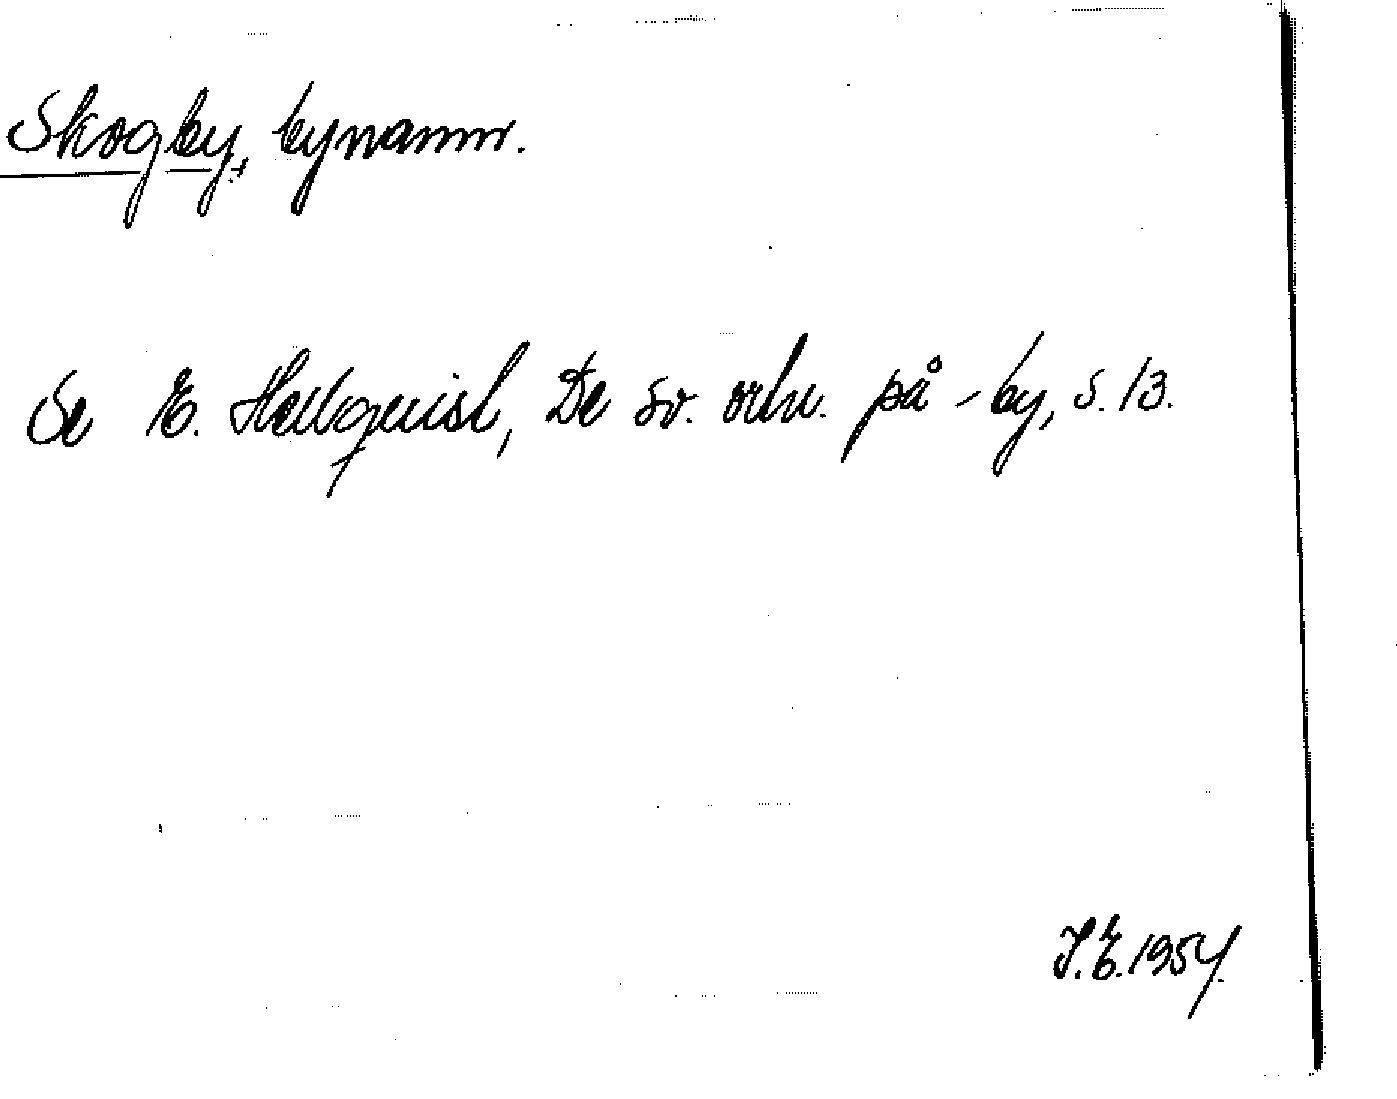 Skogby, bynamn.
Se E. Hellquist, De sv. ortn. på -by, s. 13.
I.E. 1954.